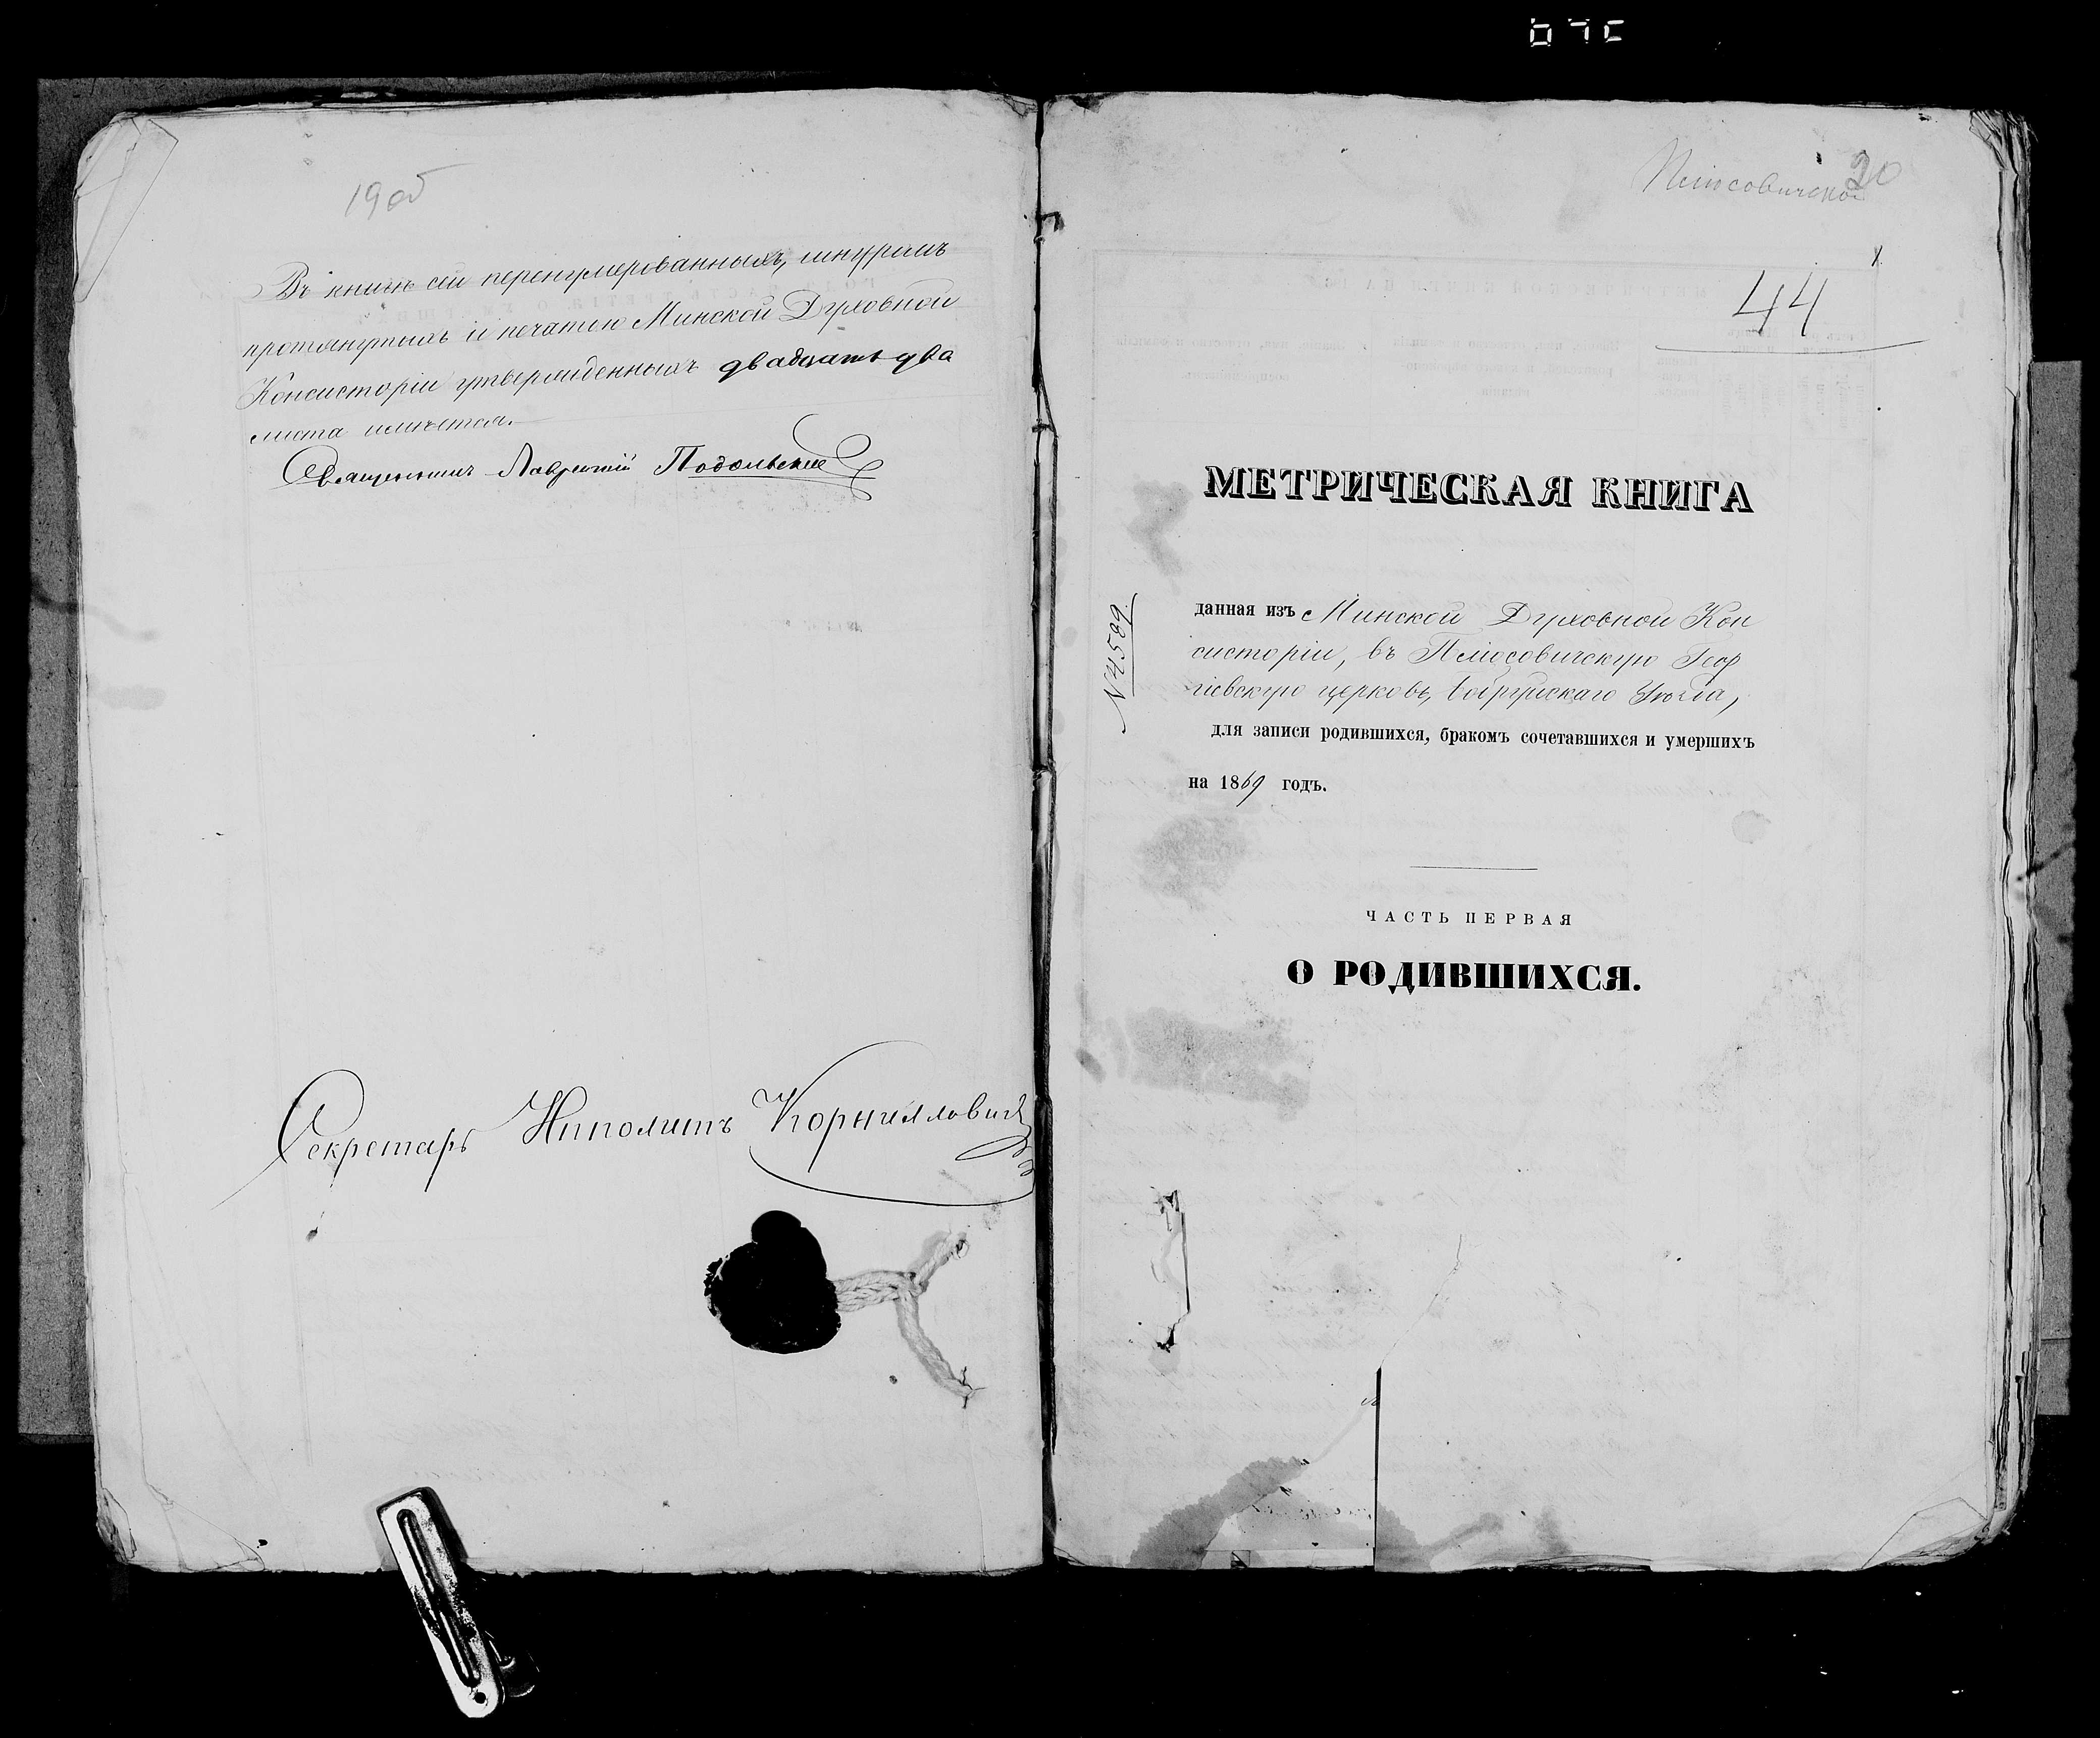 19 об
Въ книгѣ сей перенумерованныхъ, шнуромъ
протянутыхъ и печатью Минской Духовной
Консисторіи утвержденныхъ двадцать два
листа имѣется.
Священникъ Лаврентій Подольскій
Секретарь Ипполитъ Корнилловичъ
20
44
МЕТРИЧЕСКАЯ КНИГА
№ 4509.
данная изъ Минской Духовной Кон
систоріи, въ Плюсовичскую Геор
гіевскую церковь, Бобруйскаго Уѣзда,
для записи родившихся, бракомъ сочетавшихся и умершихъ
на 1869 годъ.
ЧАСТЬ ПЕРВАЯ
О РОДИВШИХСЯ.